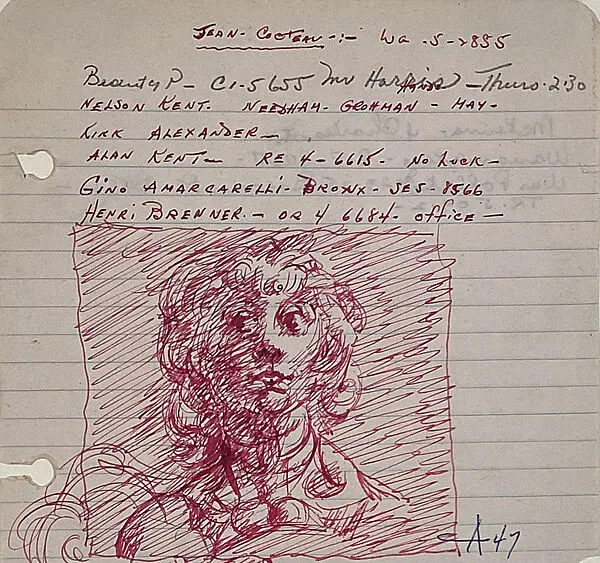 JEAN - COCTEAU - :- Wa - 5 - 2855
Beauty P - CI - 5655 Mr Harris - Thurs. 2:30
NELSON KENT. NEEDHAM - GROHMAN - MAY -
KIRK ALEXANDER -
ALAN KENT - RE 4 - 6615 - NO LUCK -
GINO AMARCARELLI - BRONX - SE5 - 8566
HENRI BRENNER - OR 4 6684 - OFFICE -
A 47